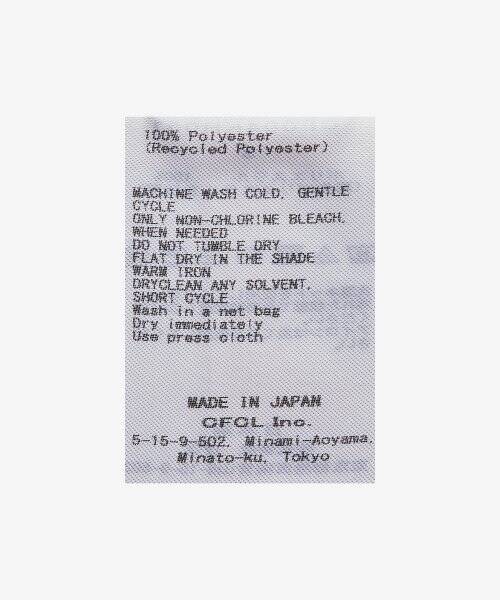 100% Polyester
(Recycled Polyester)
MACHINE WASH COLD, GENTLE
CYCLE
ONLY NON-CHLORINE BLEACH,
WHEN NEEDED
DO NOT TUMBLE DRY
FLAT DRY IN THE SHADE
WARM IRON
DRYCLEAN ANY SOLVENT,
SHORT CYCLE
Wash in a net bag
Dry immediately
Use press cloth
MADE IN JAPAN
CFCL Inc.
5-15-9-502, Minami-Aoyama,
Minato-ku, Tokyo